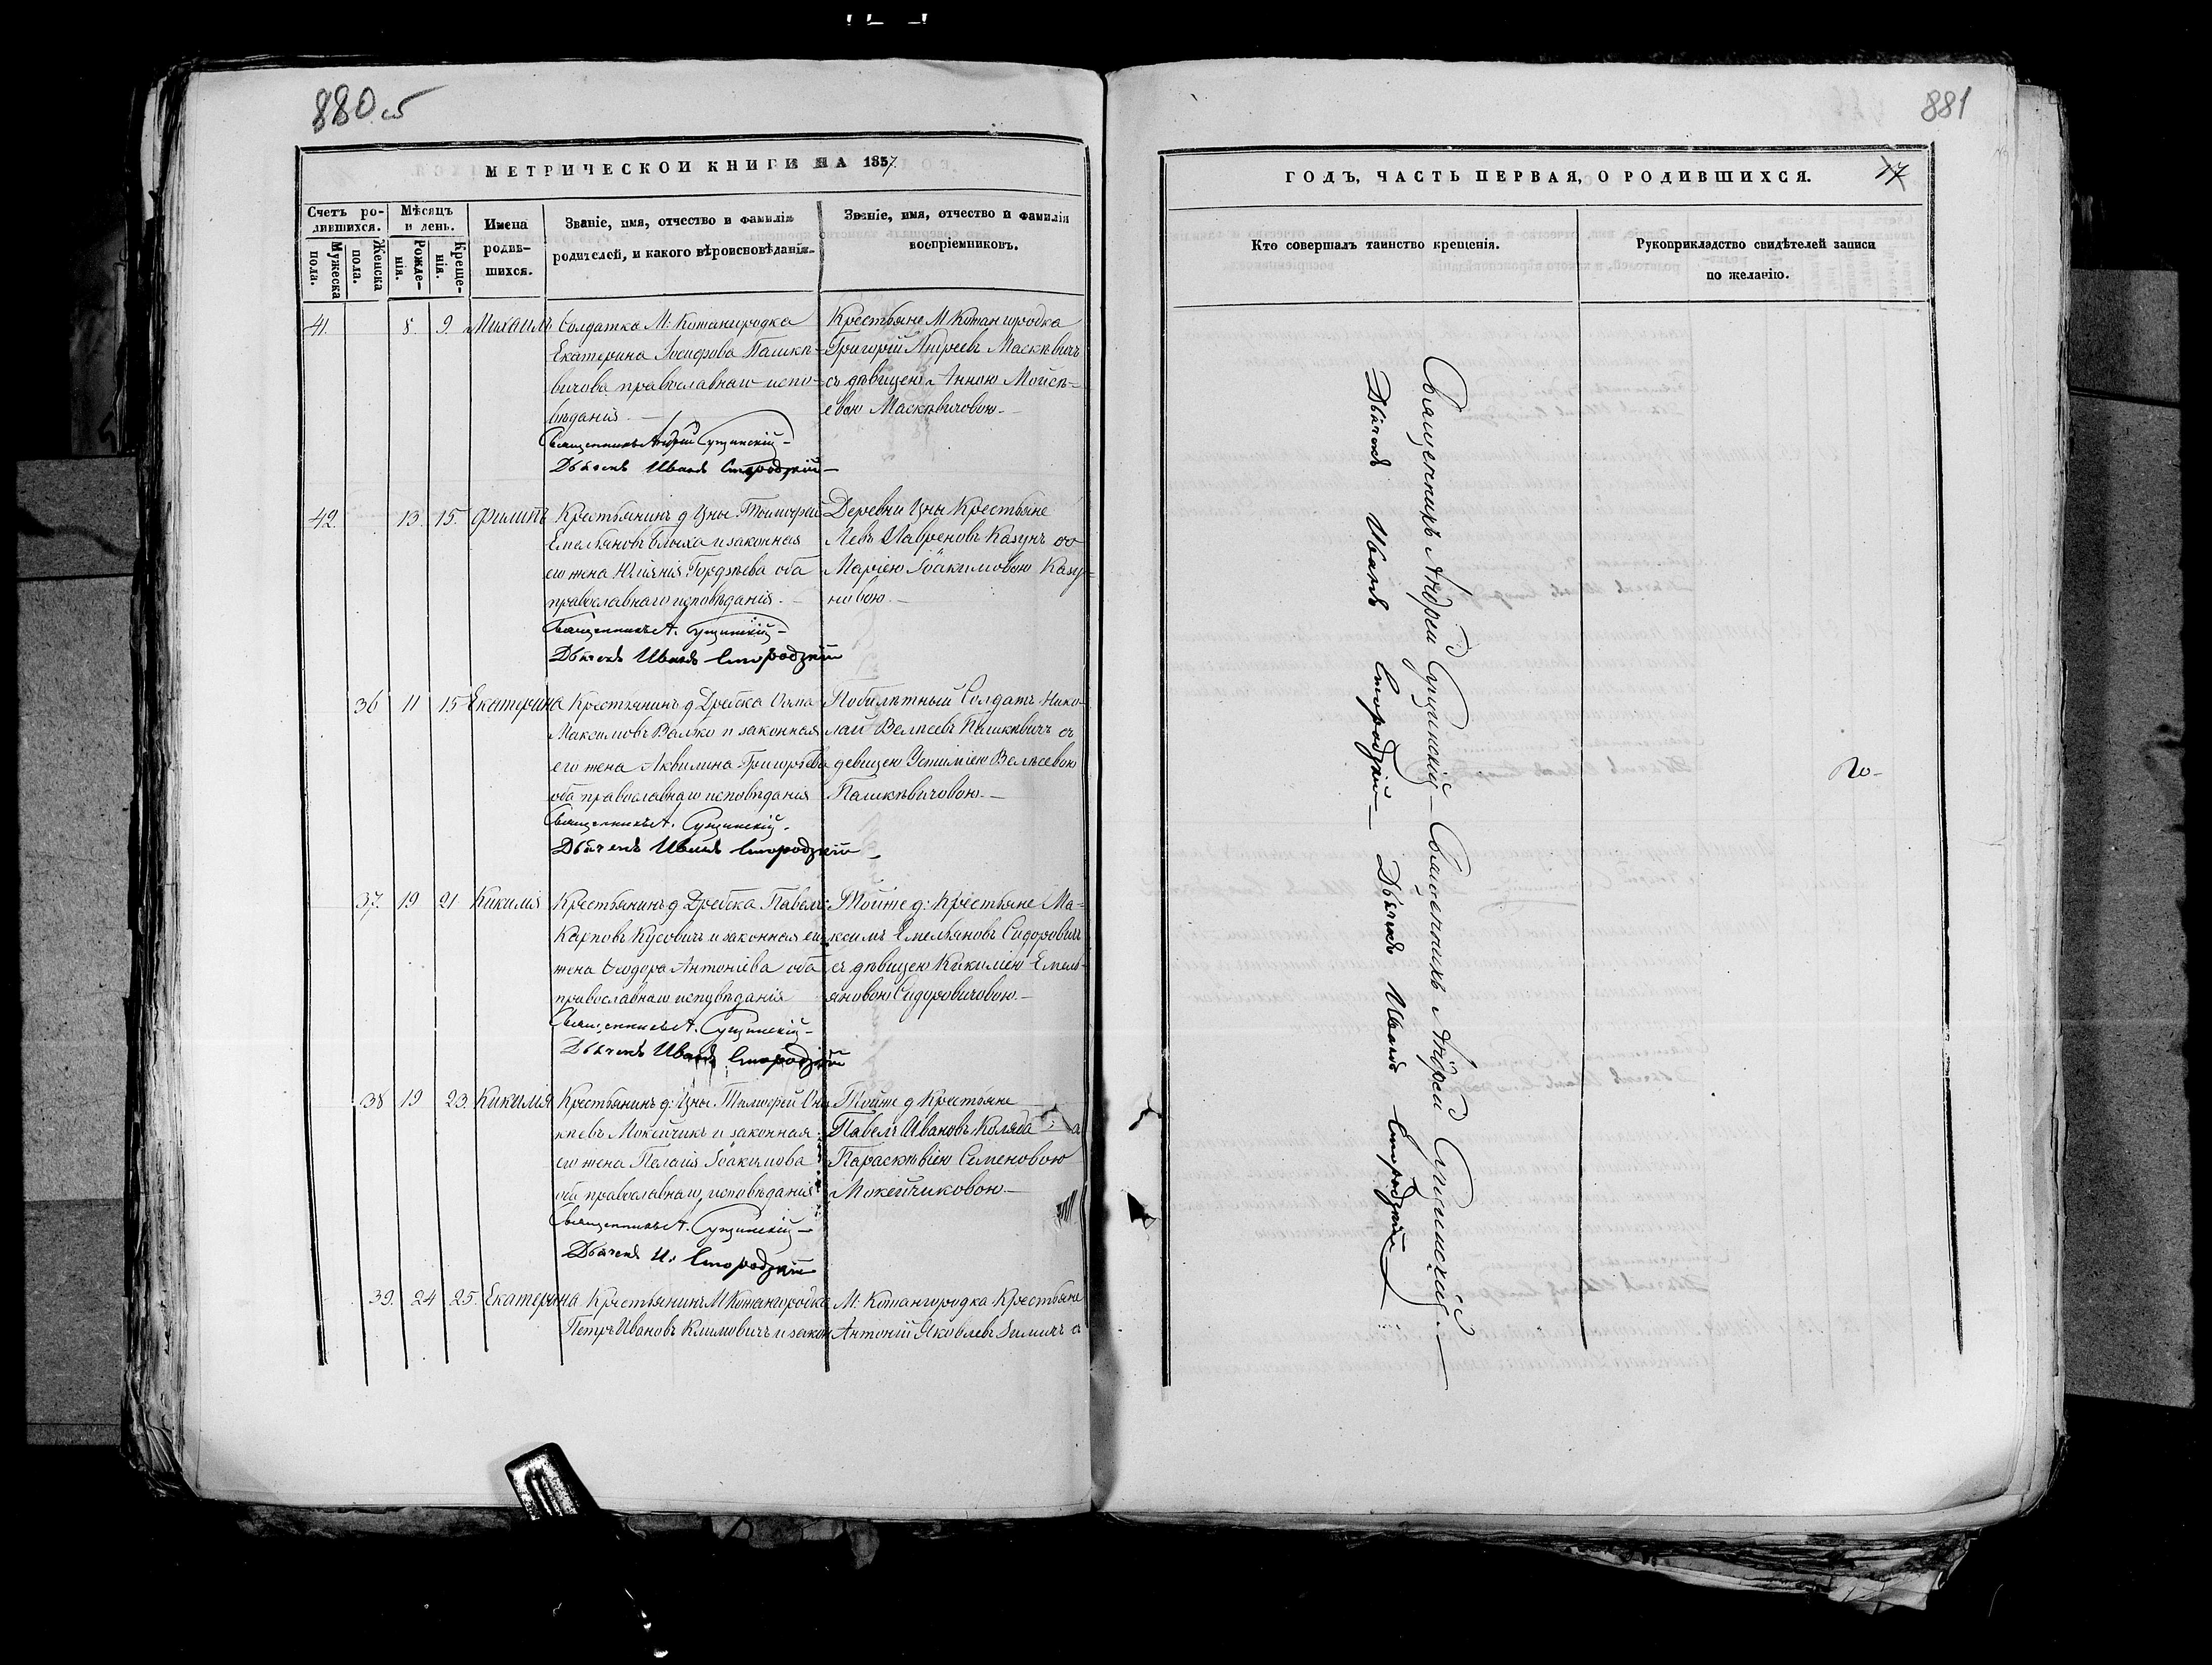 880 об
МЕТРИЧЕСКОЙ КНИГИ НА 1857.
Счетъ родившихся.
Мѣсяцъ и день.
Имена родившихся.
Званіе, имя, отчество и фамилія родителей, и какого вѣроисповѣданія.
Званіе, имя, отчество и фамилія воспріемниковъ.
Мужеска пола.
Женска пола.
Рожденія.
Крещенія.
41. 8. 9. Михаилъ
Солдатка М: Кожангродка
Екатерина Іосифова Пашкѣ-
вичова православнаго испо-
вѣданія. —
Священникъ Андрей Сущинскій —
Дьячекъ Иванъ Стородзкій —
Крестьяне М Кожангродка
Григорій Андреевъ Маскѣвичъ
съ дѣвицею Анною Мойсѣ-
евою Маскѣвичовою. —
42. 13 15. Филиппъ
Крестьянинъ д Цны Тимофей
Емельяновъ Блыха и законная
его жена Юліянія Гордѣева оба
православнаго исповѣданія. —
Священникъ А. Сущинскій —
Дьячекъ Иванъ Стородзкій
Деревни Цны Крестьяне
Левъ Лавреновъ Казунъ со
Маріею Іоакимовою Казу-
новою. —
36 11 15 Екатерина
Крестьянинъ д Дребска
Максимовъ Валько и законная
его жена Аквилина Григорьева
оба православнаго исповѣданія
Священникъ А. Сущинскій.
Дьячекъ Иванъ Стородзкій —
Побилѣтный Солдатъ Нико-
лай Пашкѣвичъ съ
девицею
Пашкѣвичовою. —
37. 19 21 Кикилія
Крестьянинъ д Дребска Павелъ
Карповъ Кусовичъ и законная его
жена Ѳеодора Антоніева оба
православнаго исповѣданія
Священникъ А. Сущинскій —
Дьячекъ Иванъ Стородзкій
Тойже д: Крестьяне Ма-
ксимъ Емельяновъ Сидоровичъ
съ дѣвицею Кикиліею Емель-
яновою Сидоровичовою. —
38 19 23. Кикилія
Крестьянинъ д: Цны Тимофей
Мокейчикъ и законная
его жена Пелагія Іоакимова
оба православнаго исповѣданія
Священникъ А. Сущинскій —
Дьячекъ И: Стородзкій
Тойже д Крестьяне
Павелъ Ивановъ Коляда съ
Параскѣвіею Семеновою
Мокейчиковою. —
39. 24 25. Екатерина
Крестьянинъ М Кожангородка
Петръ Ивановъ Климовичъ и закон
М: Кожангородка Крестьяне
Антоній Яковлевъ Зимичъ съ
881
17
ГОДЪ, ЧАСТЬ ПЕРВАЯ, О РОДИВШИХСЯ.
Кто совершалъ таинство крещенія.
Рукоприкладство свидѣтелей записи по желанію.
Священникъ Андрей Сущинскій — Священникъ Андрей Сущинскій. —
Дьячекъ Иванъ Стородзкій — Дьячекъ Иванъ Стородзкій —